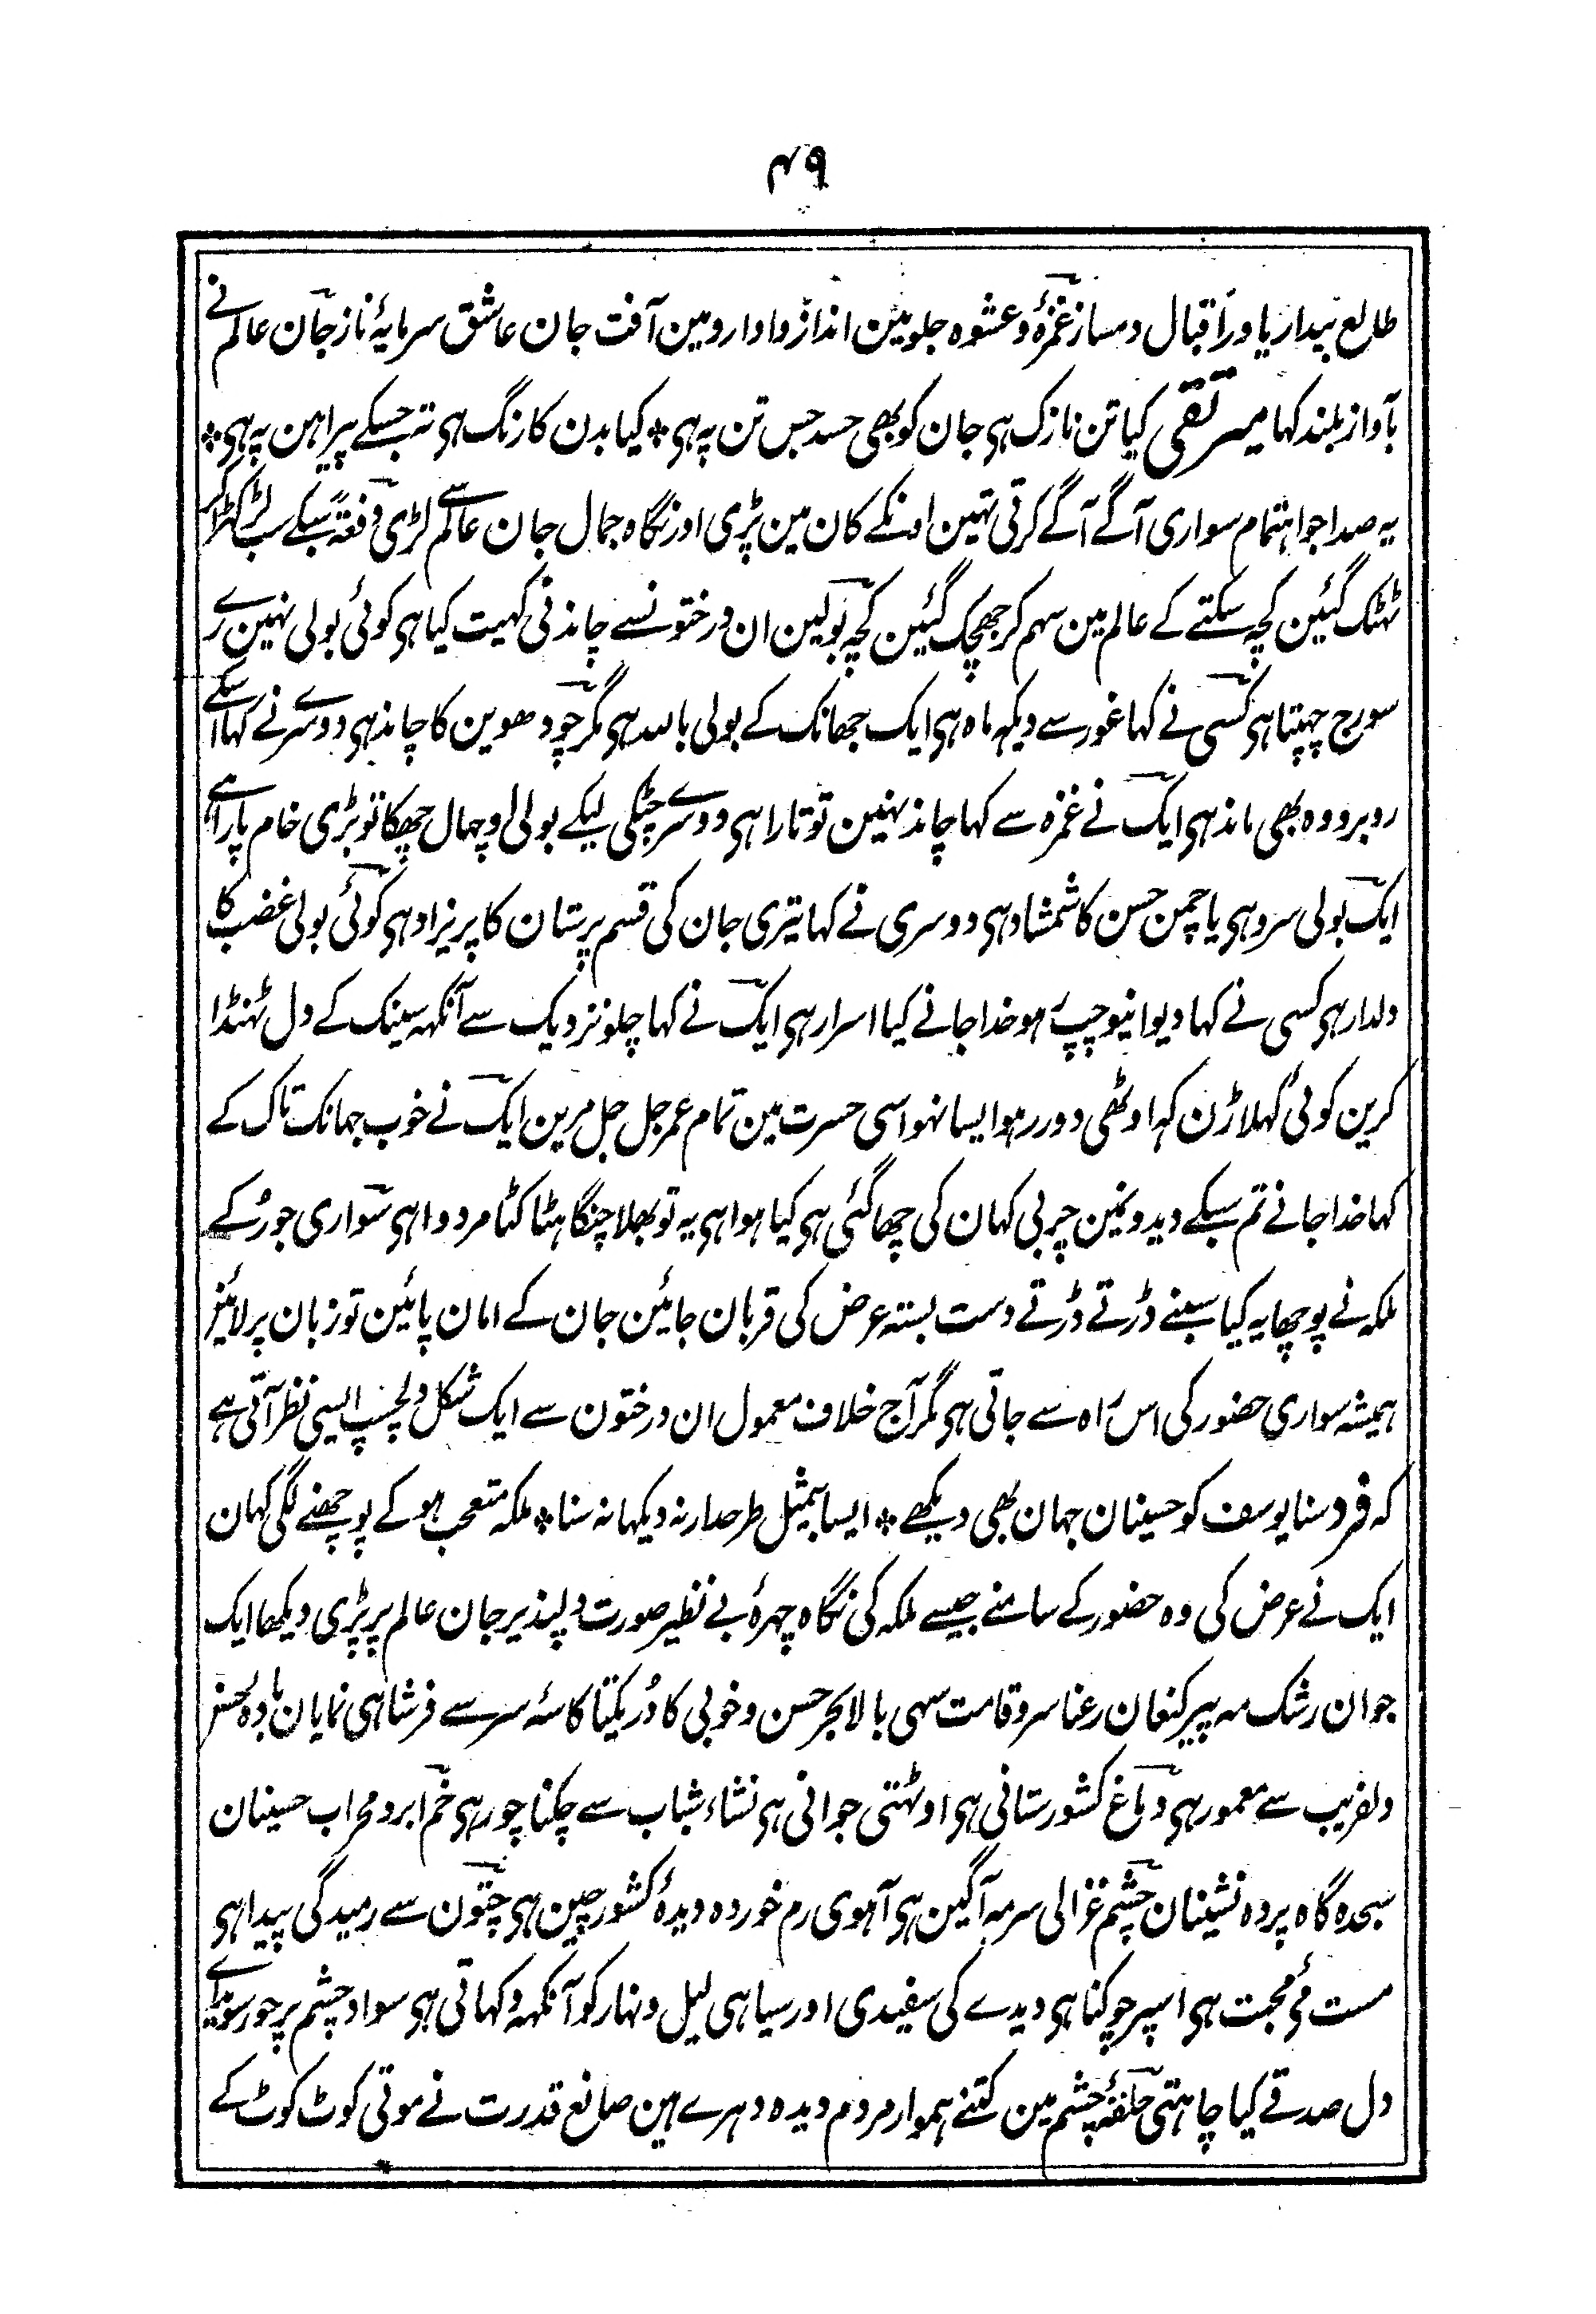 ۴۹
طالع بیدار یاور اقبال دمساز غمزۂ و عشوہ جلو مین انداز و ادا رو مین آفت جان عاشق سرمایۂ ناز جان عالم نے
بآواز بلند کہا میر تقی کیا تن نازک ہی جان کو بھی حسد جس تن پہ ہی * کیا بدن کا رنگ ہی تہ جسکے پیراہن پہ ہی *
یہ صدا جو اہتمام سواری آگے آگے کرتی تہین اونکے کان مین پڑی اور نگاہ جمال جان عالم سے لڑی دفعۃً سبکے سب لڑکھڑا کر
ٹہٹک گئین کچہ سکتے کے عالم مین سہم کر جھجک گئین کچہ بولین ان درختونسے چاندنی کہیت کیا ہی کوئی بولی نہین رے
سورج چہپتا ہی کسی نے کہا غور سے دیکہ ماہ ہی ایک جھانک کے بولی باللہ ہی مگر چودھوین کا چاند ہی دوسرے نے کہا اسکے
روبرو وہ بھی ماند ہی ایک نے غمزہ سے کہا چاند نہین تو تارا ہی دوسرے چٹکی لیکے بولی اوچھال چھکا تو بڑی خام پارا ہے
ایک بولی سرو ہی یا چمن حسن کا شمشاد ہی دوسری نے کہا تیری جان کی قسم پرستان کا پریزاد ہی کوئی بولی غضب کا
دلدار ہی کسی نے کہا دیوانیو چپ ہو خدا جانے کیا اسرار ہی ایک نے کہا چلو نزدیک سے آنکہہ سینک کے دل ٹہنڈا
کرین کوئی کہلاڑن کہہ اوٹھی دور رہو ایسا نہو اسی حسرت مین تمام عمر جل جل مرین ایک نے خوب جھانک تاک کے
کہا خدا جانے تم سبکے دیدونمین چربی کہان کی چھا گئی ہی کیا ہوا ہی یہ تو بھلا چنگا ہٹا کٹا مردوا ہی سواری جو رُکے
ملکہ نے پوچھا یہ کیا سبنے ڈرتے ڈرتے دست بستہ عرض کی قربان جائین جان کے امان پائین تو زبان پر لائین
ہمیشہ سواری حضور کی اس راہ سے جاتی ہی مگر آج خلاف معمول ان درختون سے ایک شکل دلچسپ ایسی نظر آتی ہے
کہ فرد سنا یوسف کو حسینان جہان بھی دیکھے * ایسا بیمثل طرحدار نہ دیکہا نہ سنا * ملکہ متعجب ہو کے پوچھنے لگی کہان
ایک نے عرض کی وہ حضور کے سامنے جیسے ملکہ کی نگاہ چہرۂ بے نظیر صورت دلپذیر جان عالم پر پڑی دیکھا ایک
جوان رشک مہ پیر کنعان رعنا سرو قامت سہی بالا بحر حسن و خوبی کا دُر یکتا کاسۂ سر سے فر شاہی نمایان بادۂ حسن
دلفریب سے معمور ہی دماغ کشور ستانی ہی اوٹہتی جوانی ہی نشاء شباب سے چکنا چور ہی خم ابرو محراب حسینان
سجدہ گاہ پردہ نشینان چشم غزالی سرمہ آگین ہی آہوی رم خوردہ دیدۂ کشور چین ہی چتون سے رمیدگی پیدا ہی
مست مۓ محبت ہی اسپر چوکنا ہی دیدے کی سفیدی اور سیاہی لیل و نہار کو آنکہہ دکہاتی ہی سواد چشم پر حور سویداے
دل صدقے کیا چاہتی حلقۂ چشم مین کتنے ہموار مردم دیدہ دہرے ہین صانع قدرت نے موتی کوٹ کوٹ کے